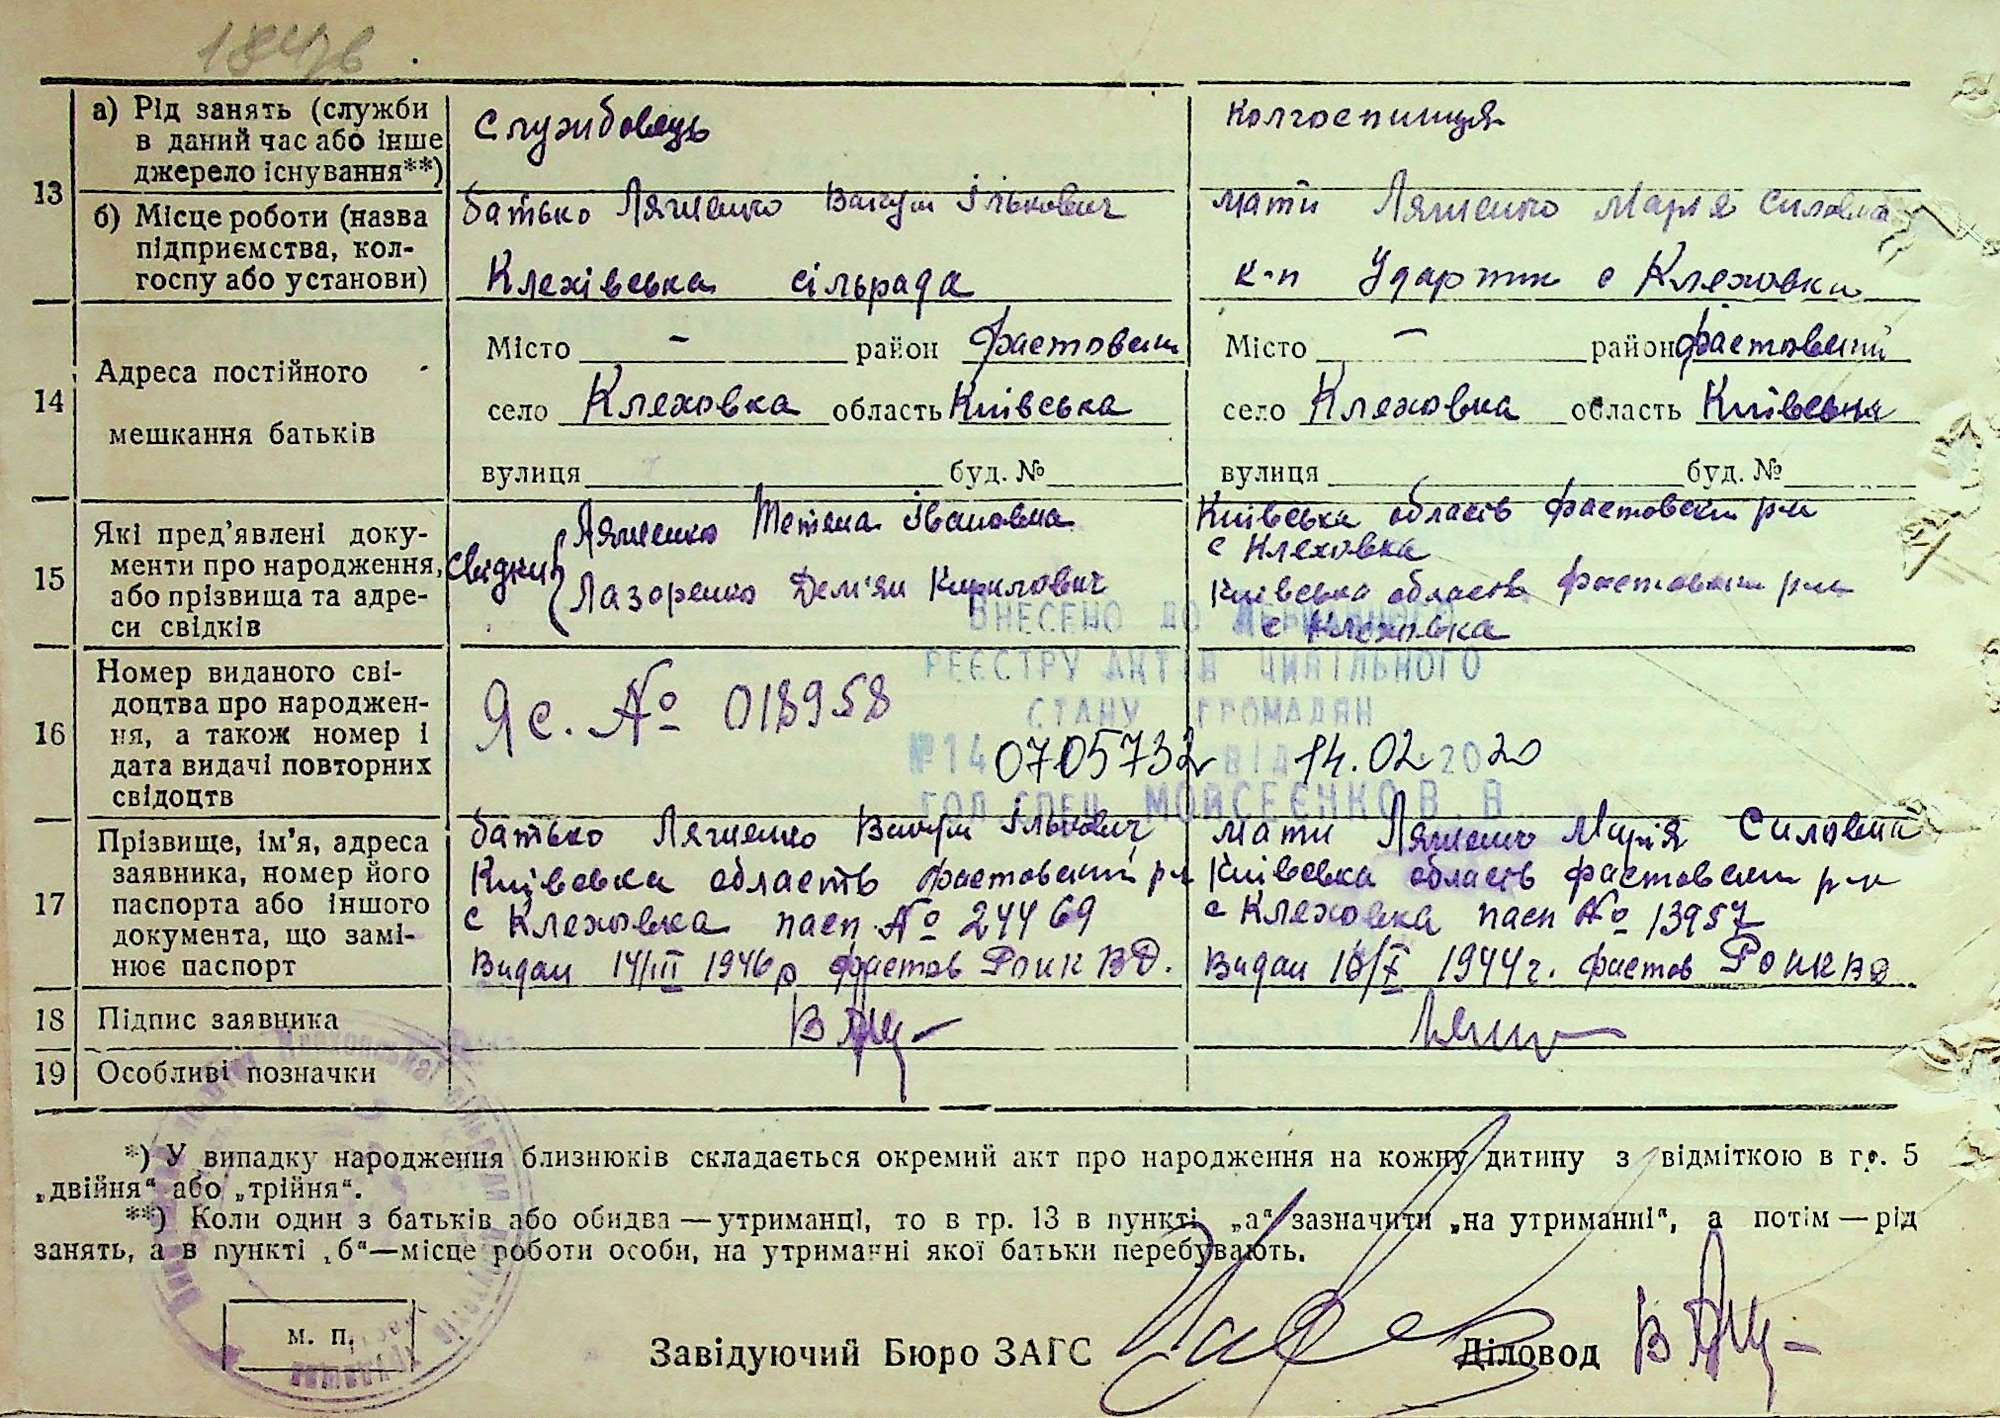 а) Рід занять (служби в даний час або інше джерело існування**)
Службовець
Колгоспниця
13
б) Місце роботи (назва підприємства, колгоспу або установи)
батько Ляшенко Вакум Ількович
Клехівська сільрада
мати Ляшенко Марія Силовна
к-п Ударник с Клеховки
14
Адреса постійного
мешкання батьків
Місто - район Фастовский
село Клеховка область Київська
вулиця буд. №
Місто - район Фастовский
село Клеховка область Київська
вулиця буд. №
15
Які пред'явлені доку-
менти про народження,
або прізвища та адре-
си свідків
Свідки
Ляшенко Тетяна Івановна
Лазоренко Дем'ян Кирилович
Київська область Фастовский р-н
с Клеховка
Київська область Фастовский р-н
с Клеховка
16
Номер виданого сві-
доцтва про народжен-
ня, а також номер і
дата видачі повторних
свідоцтв
Яс. № 018958
ВНЕСЕНО ДО ДЕРЖАВНОГО
РЕЄСТРУ АКТІВ ЦИВІЛЬНОГО
СТАНУ ГРОМАДЯН
№ 14 0705732 ВІД 14.02.2020
ГОЛ.СПЕЦ. МОЙСЕЄНКО В. В
17
Прізвище, ім'я, адреса
заявника, номер його
паспорта або іншого
документа, що замі-
нює паспорт
батько Ляшенко Вакум Ількович
Київська область Фастовский р-н
с Клеховка пасп № 24469
Видан 14/III 1946р Фастов РОНКВД.
мати Ляшенко Марія Силовна
Київська область Фастовский р-н
с Клеховка пасп № 13957
Видан 16/X 1944г. Фастов РОНКВД
18 Підпис заявника
19 Особливі позначки
*) У випадку народження близнюків складається окремий акт про народження на кожну дитину з відміткою в гр. 5
„двійня“ або „трійня“.
**) Коли один з батьків або обидва — утриманці, то в гр. 13 в пункті „а“ зазначити „на утриманні“, а потім — рід
занять, а в пункті „б“—місце роботи особи, на утриманні якої батьки перебувають.
м. п.
Завідуючий Бюро ЗАГС
Діловод